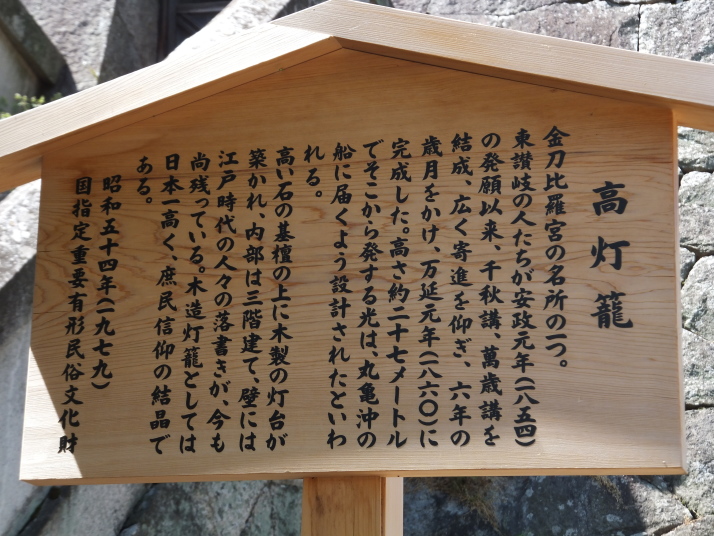 高灯籠
金刀比羅宮の名所の一つ。
東讃岐の人たちが安政元年(一八五四)
の発願以来、千秋講、萬歳講を
結成、広く寄進を仰ぎ、六年の
歳月をかけ、万延元年(一八六〇)に
完成した。高さ約二十七メートル
でそこから発する光は、丸亀沖の
船に届くよう設計されたといわ
れる。
高い石の基檀の上に木製の灯台が
築かれ、内部は三階建て、壁には
江戸時代の人々の落書きが、今も
尚残っている。木造灯籠としては
日本一高く、庶民信仰の結晶で
ある。
昭和五十四年(一九七九)
国指定重要有形民俗文化財